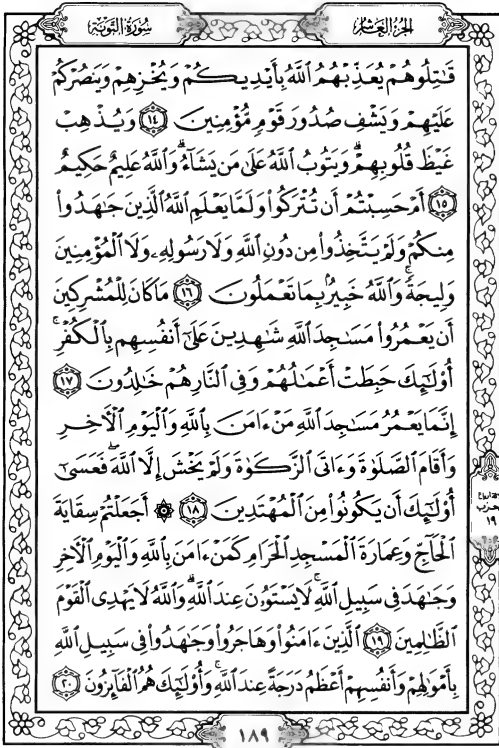 سُورَةُ التَّوْبَةِ
الجُزءُ العَاشِرُ
قَٰتِلُوهُمْ يُعَذِّبْهُمُ ٱللَّهُ بِأَيْدِيكُمْ وَيُخْزِهِمْ وَيَنصُرْكُمْ
عَلَيْهِمْ وَيَشْفِ صُدُورَ قَوْمٍ مُّؤْمِنِينَ ١٤ وَيُذْهِبْ
غَيْظَ قُلُوبِهِمْ ۗ وَيَتُوبُ ٱللَّهُ عَلَىٰ مَن يَشَآءُ ۗ وَٱللَّهُ عَلِيمٌ حَكِيمٌ
١٥ أَمْ حَسِبْتُمْ أَن تُتْرَكُوا۟ وَلَمَّا يَعْلَمِ ٱللَّهُ ٱلَّذِينَ جَٰهَدُوا۟
مِنكُمْ وَلَمْ يَتَّخِذُوا۟ مِن دُونِ ٱللَّهِ وَلَا رَسُولِهِۦ وَلَا ٱلْمُؤْمِنِينَ
وَلِيجَةً ۚ وَٱللَّهُ خَبِيرٌۢ بِمَا تَعْمَلُونَ ١٦ مَا كَانَ لِلْمُشْرِكِينَ
أَن يَعْمُرُوا۟ مَسَٰجِدَ ٱللَّهِ شَٰهِدِينَ عَلَىٰٓ أَنفُسِهِم بِٱلْكُفْرِ ۚ
أُو۟لَٰٓئِكَ حَبِطَتْ أَعْمَٰلُهُمْ وَفِى ٱلنَّارِ هُمْ خَٰلِدُونَ ١٧
إِنَّمَا يَعْمُرُ مَسَٰجِدَ ٱللَّهِ مَنْ ءَامَنَ بِٱللَّهِ وَٱلْيَوْمِ ٱلْـَٔاخِرِ
وَأَقَامَ ٱلصَّلَوٰةَ وَءَاتَى ٱلزَّكَوٰةَ وَلَمْ يَخْشَ إِلَّا ٱللَّهَ ۖ فَعَسَىٰٓ
أُو۟لَٰٓئِكَ أَن يَكُونُوا۟ مِنَ ٱلْمُهْتَدِينَ ١٨ ۞ أَجَعَلْتُمْ سِقَايَةَ
ٱلْحَآجِّ وَعِمَارَةَ ٱلْمَسْجِدِ ٱلْحَرَامِ كَمَنْ ءَامَنَ بِٱللَّهِ وَٱلْيَوْمِ ٱلْـَٔاخِرِ
وَجَٰهَدَ فِى سَبِيلِ ٱللَّهِ ۚ لَا يَسْتَوُۥنَ عِندَ ٱللَّهِ ۗ وَٱللَّهُ لَا يَهْدِى ٱلْقَوْمَ
ٱلظَّٰلِمِينَ ١٩ ٱلَّذِينَ ءَامَنُوا۟ وَهَاجَرُوا۟ وَجَٰهَدُوا۟ فِى سَبِيلِ ٱللَّهِ
بِأَمْوَٰلِهِمْ وَأَنفُسِهِمْ أَعْظَمُ دَرَجَةً عِندَ ٱللَّهِ ۚ وَأُو۟لَٰٓئِكَ هُمُ ٱلْفَآئِزُونَ ٢٠
١٨٩